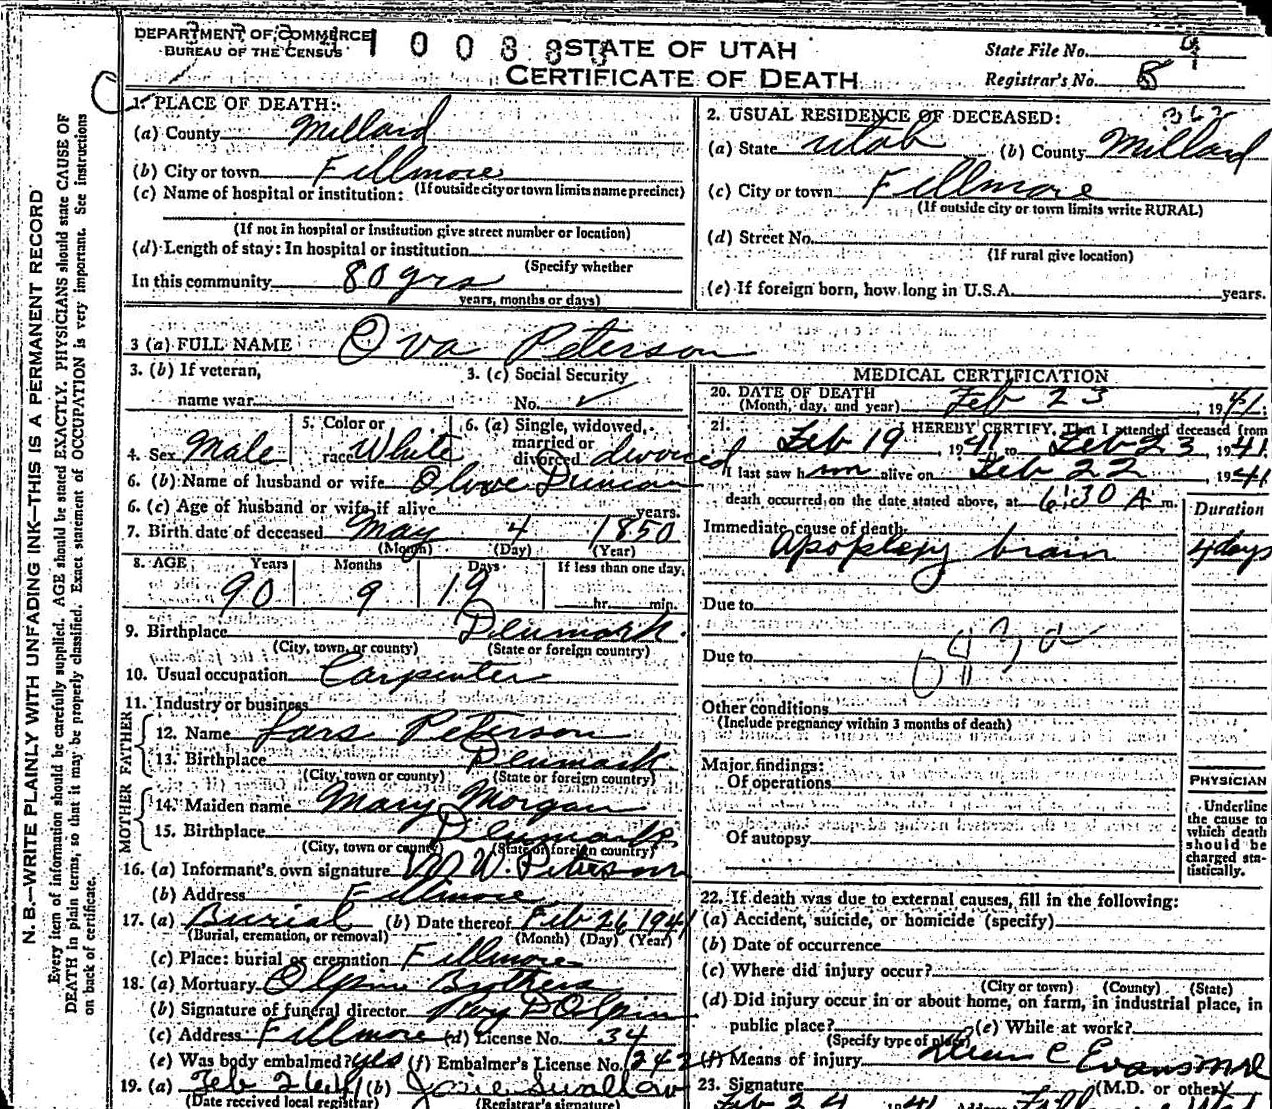 DEPARTMENT OF COMMERCE
BUREAU OF THE CENSUS
STATE OF UTAH
CERTIFICATE OF DEATH
State File No.
Registrar's No. 8
1. PLACE OF DEATH:
(a) County Millard
(b) City or town Fillmore
(If outside city or town limits name precinct)
(c) Name of hospital or institution:
(If not in hospital or institution give street number or location)
(d) Length of stay: In hospital or institution
(Specify whether
In this community 80 yrs
years, months or days)
2. USUAL RESIDENCE OF DECEASED:
(a) State Utah (b) County Millard
(c) City or town Fillmore
(If outside city or town limits write RURAL)
(d) Street No.
(If rural give location)
(e) If foreign born, how long in U.S.A. years.
3 (a) FULL NAME Ova Peterson
3. (b) If veteran,
name war
3. (c) Social Security
No.
4. Sex Male
5. Color or
race White
6. (a) Single, widowed,
married or
divorced divorced
6. (b) Name of husband or wife Olive Duncan
6. (c) Age of husband or wife if alive years.
7. Birth date of deceased May 4 1850
(Month) (Day) (Year)
8. AGE Years Months Days If less than one day,
90 9 19 hr. min.
9. Birthplace Denmark
(City, town, or county) (State or foreign country)
10. Usual occupation Carpenter
11. Industry or business
FATHER
12. Name Lars Peterson
13. Birthplace Denmark
(City, town or county) (State or foreign country)
MOTHER
14. Maiden name Mary Morgan
15. Birthplace Denmark
(City, town or county) (State or foreign country)
16. (a) Informant's own signature W. Peterson
(b) Address Fillmore
17. (a) Burial (b) Date thereof Feb 26 1941
(Burial, cremation, or removal) (Month) (Day) (Year)
(c) Place: burial or cremation Fillmore
18. (a) Mortuary Olpin Brothers
(b) Signature of funeral director Roy D Olpin
(c) Address Fillmore (d) License No. 34
(e) Was body embalmed? yes (f) Embalmer's License No. 242
19. (a) Feb 26 41 (b) Josie Swallow
(Date received local registrar) (Registrar's signature)
MEDICAL CERTIFICATION
20. DATE OF DEATH
(Month, day, and year) Feb 23, 1941.
21. I HEREBY CERTIFY, That I attended deceased from
Feb 19, 1941 to Feb 23, 1941.
I last saw him alive on Feb 22 1941
death occurred on the date stated above, at 6:30 A m.
Duration
Immediate cause of death
apoplexy brain 4 days
Due to
Due to
Other conditions
(Include pregnancy within 3 months of death)
Major findings:
Of operations
Of autopsy
PHYSICIAN
Underline
the cause to
which death
should be
charged sta-
tistically.
22. If death was due to external causes, fill in the following:
(a) Accident, suicide, or homicide (specify)
(b) Date of occurrence
(c) Where did injury occur?
(City or town) (County) (State)
(d) Did injury occur in or about home, on farm, in industrial place, in
public place? (e) While at work?
(Specify type of place)
(f) Means of injury
23. Signature Dean C Evans MD
(M.D. or other)
Feb 24 1941 Address
N. B.—WRITE PLAINLY WITH UNFADING INK—THIS IS A PERMANENT RECORD
Every item of information should be carefully supplied. AGE should be stated EXACTLY. PHYSICIANS should state CAUSE OF
DEATH in plain terms, so that it may be properly classified. Exact statement of OCCUPATION is very important. See instructions
on back of certificate.